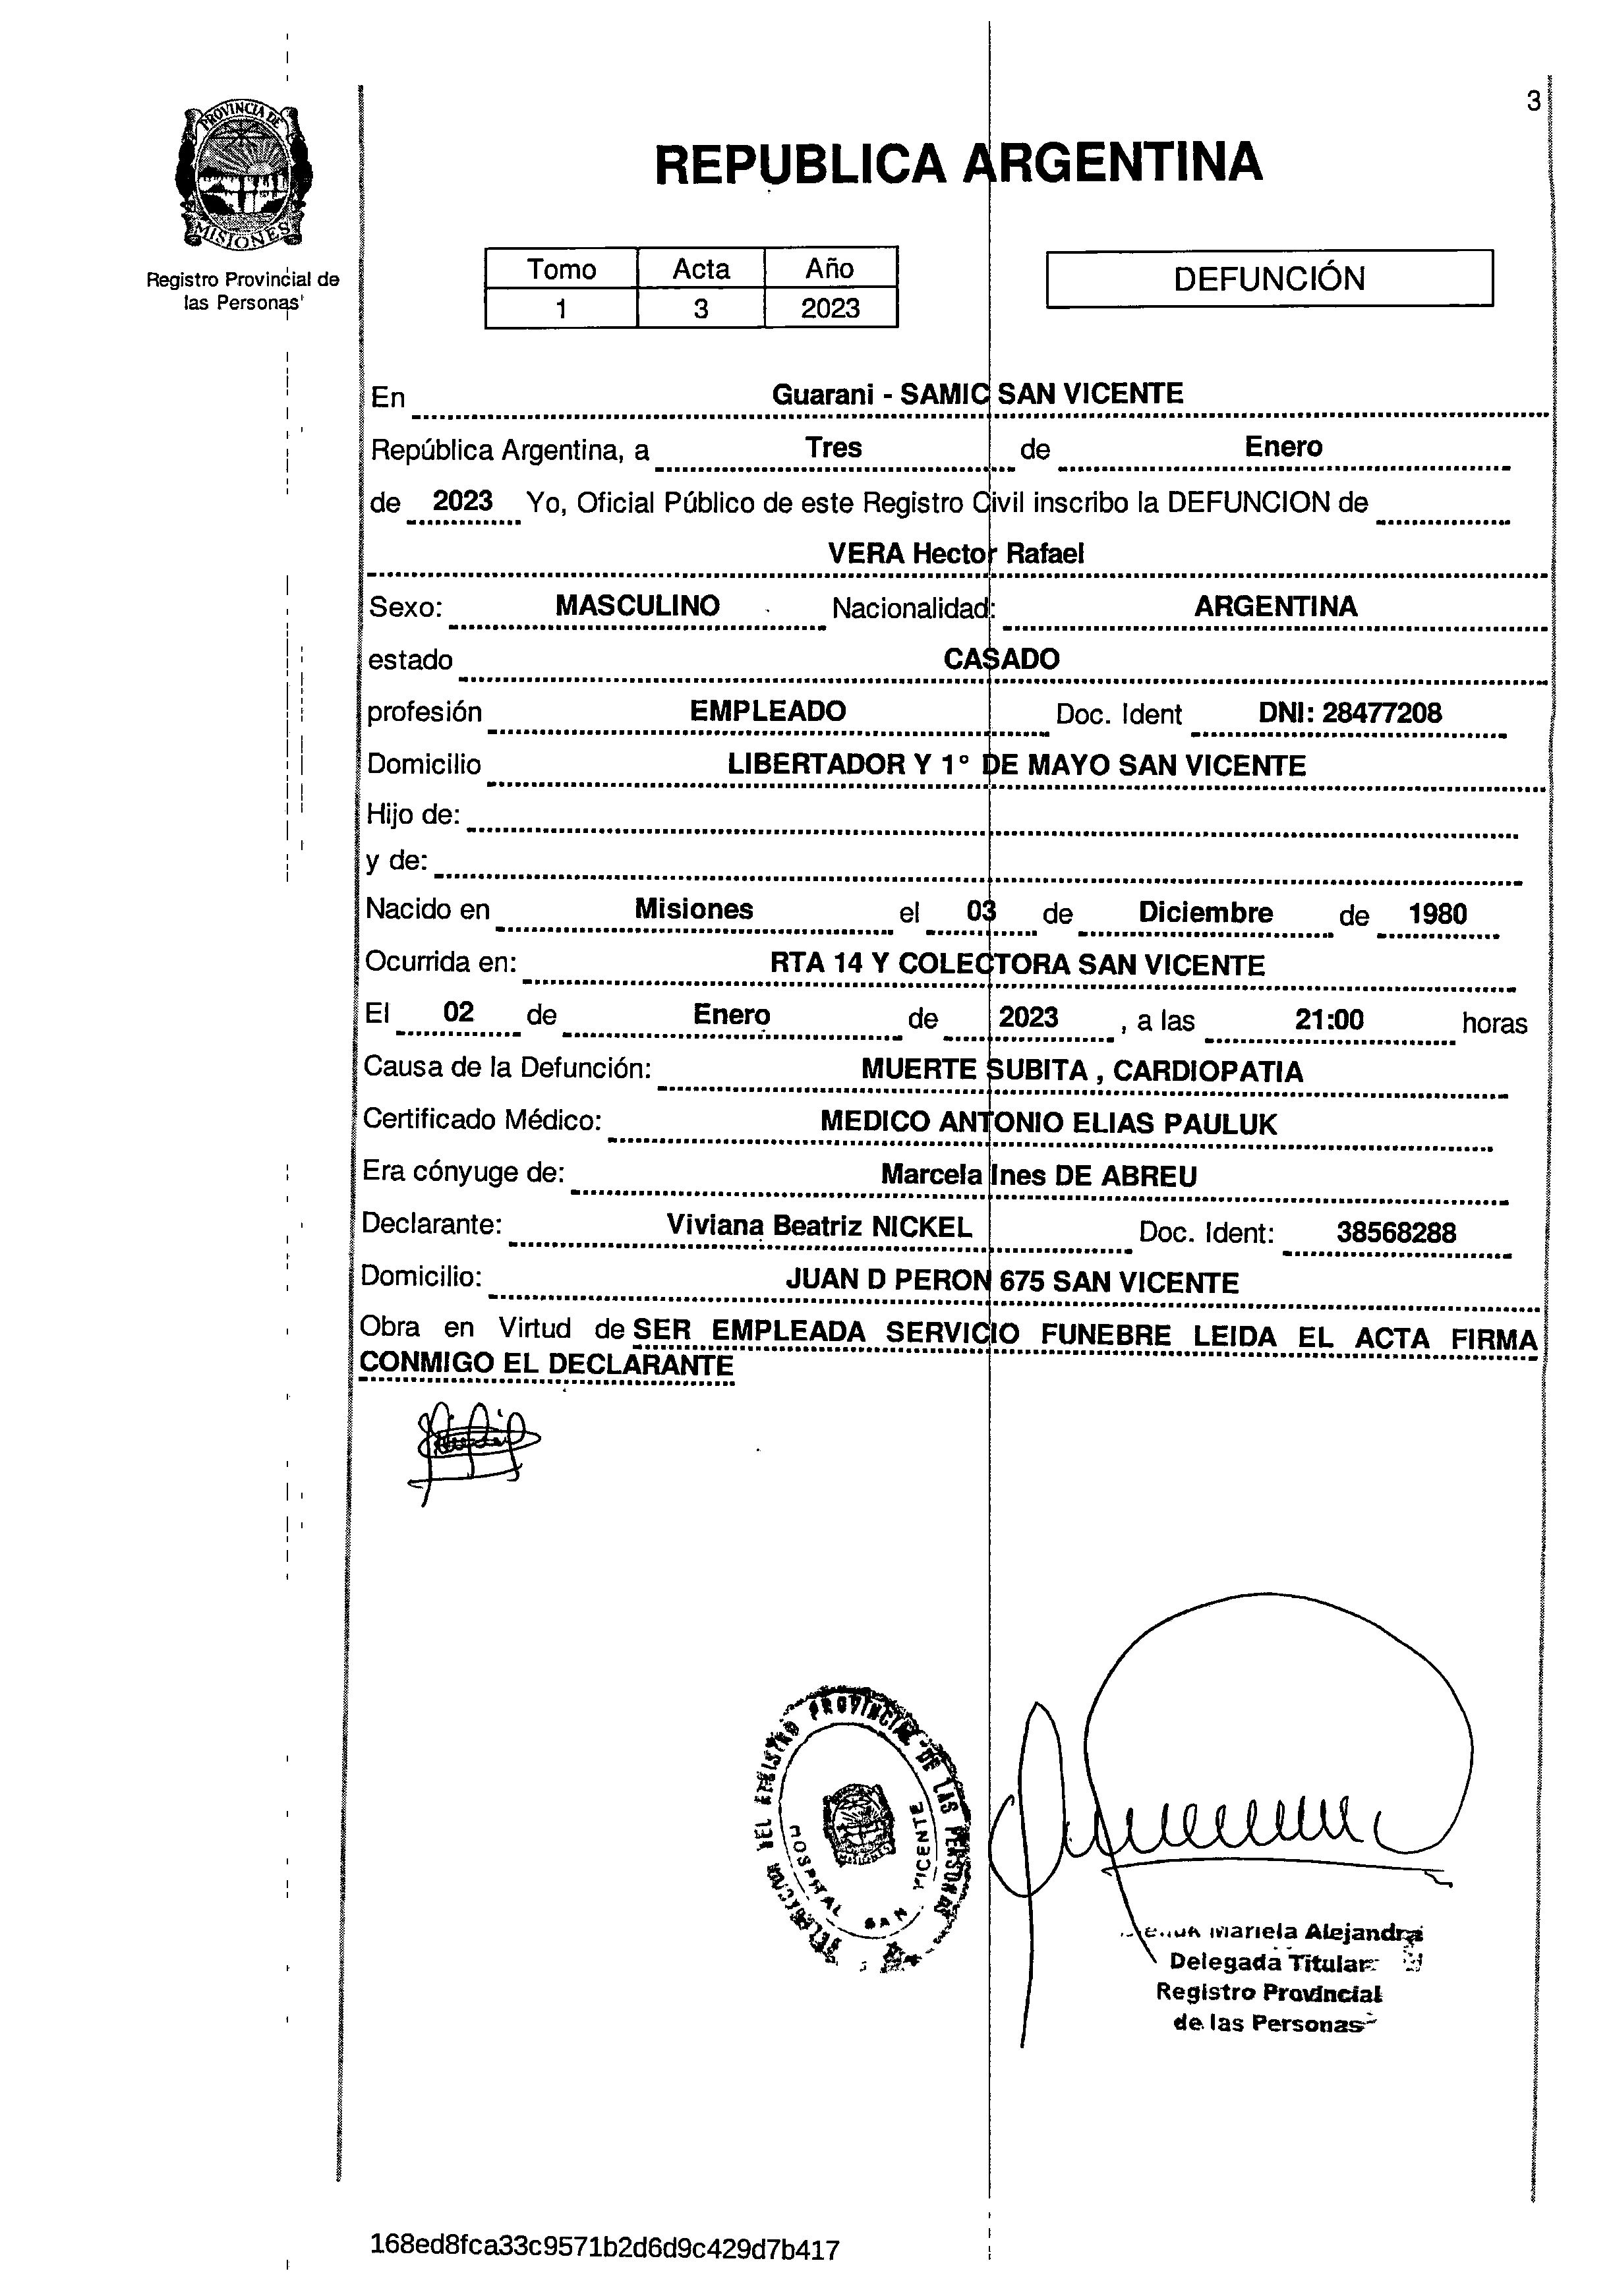 3
PROVINCIA DE
MISIONES
Registro Provincial de
las Personas
REPUBLICA ARGENTINA
Tomo Acta Año
1 3 2023
DEFUNCIÓN
En Guarani - SAMIC SAN VICENTE
República Argentina, a Tres de Enero
de 2023 Yo, Oficial Público de este Registro Civil inscribo la DEFUNCION de
VERA Hector Rafael
Sexo: MASCULINO Nacionalidad: ARGENTINA
estado CASADO
profesión EMPLEADO Doc. Ident DNI: 28477208
Domicilio LIBERTADOR Y 1° DE MAYO SAN VICENTE
Hijo de:
y de:
Nacido en Misiones el 03 de Diciembre de 1980
Ocurrida en: RTA 14 Y COLECTORA SAN VICENTE
El 02 de Enero de 2023 , a las 21:00 horas
Causa de la Defunción: MUERTE SUBITA , CARDIOPATIA
Certificado Médico: MEDICO ANTONIO ELIAS PAULUK
Era cónyuge de: Marcela Ines DE ABREU
Declarante: Viviana Beatriz NICKEL Doc. Ident: 38568288
Domicilio: JUAN D PERON 675 SAN VICENTE
Obra en Virtud de SER EMPLEADA SERVICIO FUNEBRE LEIDA EL ACTA FIRMA
CONMIGO EL DECLARANTE
DELEGACION DEL REGISTRO PROVINCIAL DE LAS PERSONAS
HOSPITAL SAN VICENTE
Mariela Alejandra
Delegada Titular
Registro Provincial
de las Personas
168ed8fca33c9571b2d6d9c429d7b417